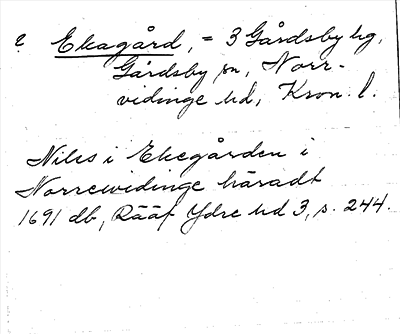 ? Ekagård, = 3 Gårdsby hg,
Gårdsby sn, Norr-
vidinge hd, Kron. l.
Niles i Ekegården i
Norrewidinge häradt
1691 db, Rääf Ydre hd 3, s. 244.